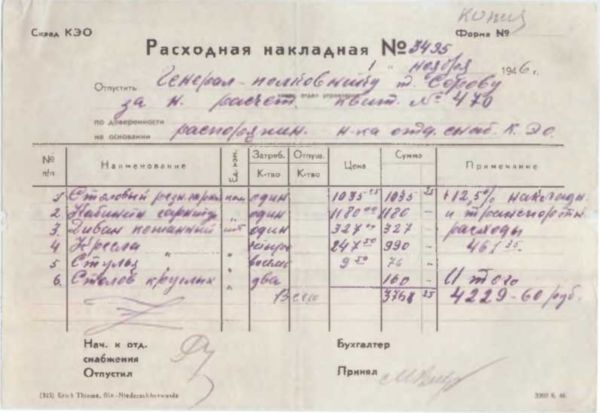 Копия
Склад КЭО
Форма №
Расходная накладная № 3495
" 1 " ноября 1946 г.
Отпустить Генерал-полковнику т. Серову
за н. расчет. квит. № 470
по доверенности
на основании распоряжен. н-ка отд. снаб. К.ЭО.
№ п/п Наименование Ед. изм. Затреб. К-тво Отпущ. К-тво Цена Сумма Примечание
1 Столовый один 1035 25 1035 25 +12,5% накладн.
2 Кабинет один 1180 1180 и транспортн.
3 Диван кожанный шт один 327 327 расходы
4 Кресла " четыре 247 50 990 461 35
5 Стулья " восемь 9 50 76
6. Столов круглых " два 160 Итого
Всего 3768 25 4229-60 руб.
Нач. к отд.
снабжения
Отпустил
Бухгалтер
Принял